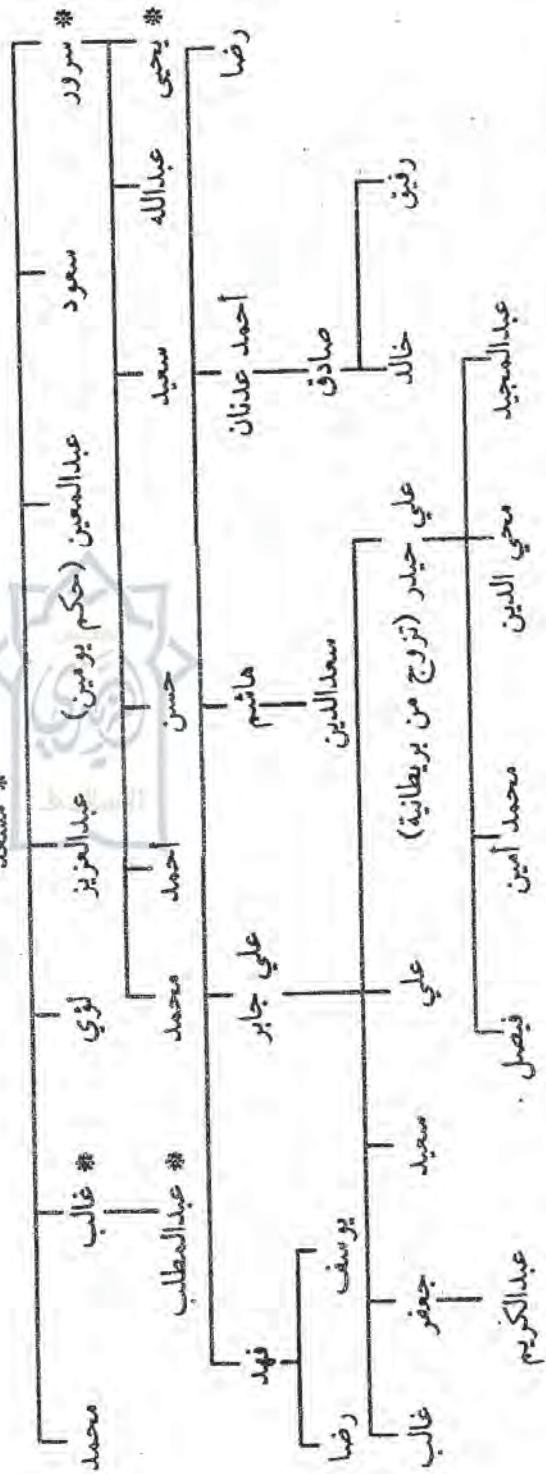 * سرور سعود عبدالمعين (حكم يومين) عبدالعزيز لؤي غالب * محمد
* يحيى عبدالله سعيد حسن أحمد محمد عبدالمطلب *
رضا أحمد عدنان هاشم علي جابر فهد
صادق سعدالدين يوسف رضا
رفيق خالد علي حيدر (تزوج من بريطانية) علي سعيد جعفر غالب
عبدالمجيد محي الدين محمد أمين فيصل عبدالكريم